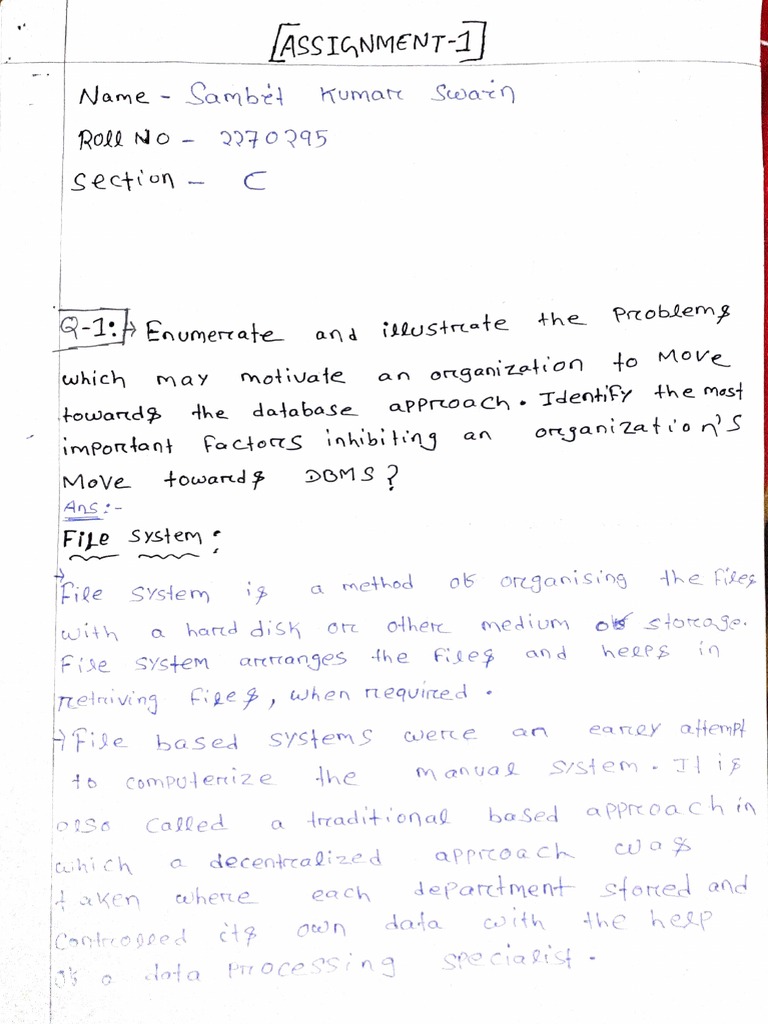 [ASSIGNMENT-1]
Name - Sambit Kumar Swain
Roll NO - 2270295
Section - C
Q-1:→ Enumerate and illustrate the Problems
which may motivate an organization to Move
towards the database approach. Identify the most
important factors inhibiting an organization's
Move towards DBMS?
Ans:-
File System:
→ File system is a method of organising the files
with a hard disk or other medium of storage.
File system arranges the files and helps in
retriving files, when required.
→ File based systems were an early attempt
to computerize the manual system. It is
also called a traditional based approach in
which a decentralized approach was
taken where each department stored and
controlled its own data with the help
of a data processing specialist.